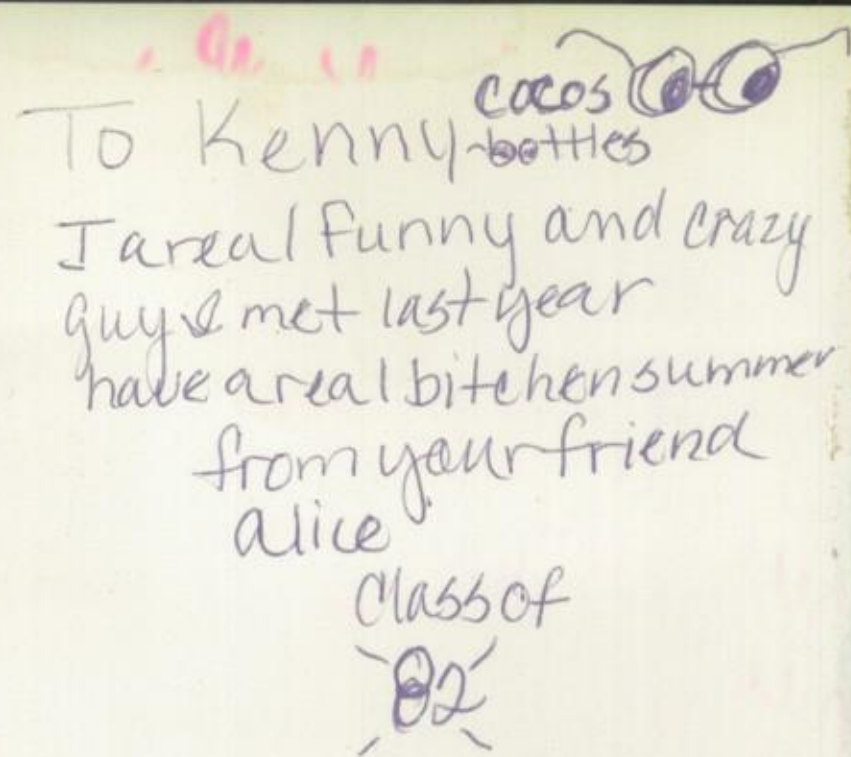 cocos
To Kenny-bottles
I a real funny and crazy
guy I met last year
have a real bitchen summer
from your friend
alice
Class of
82